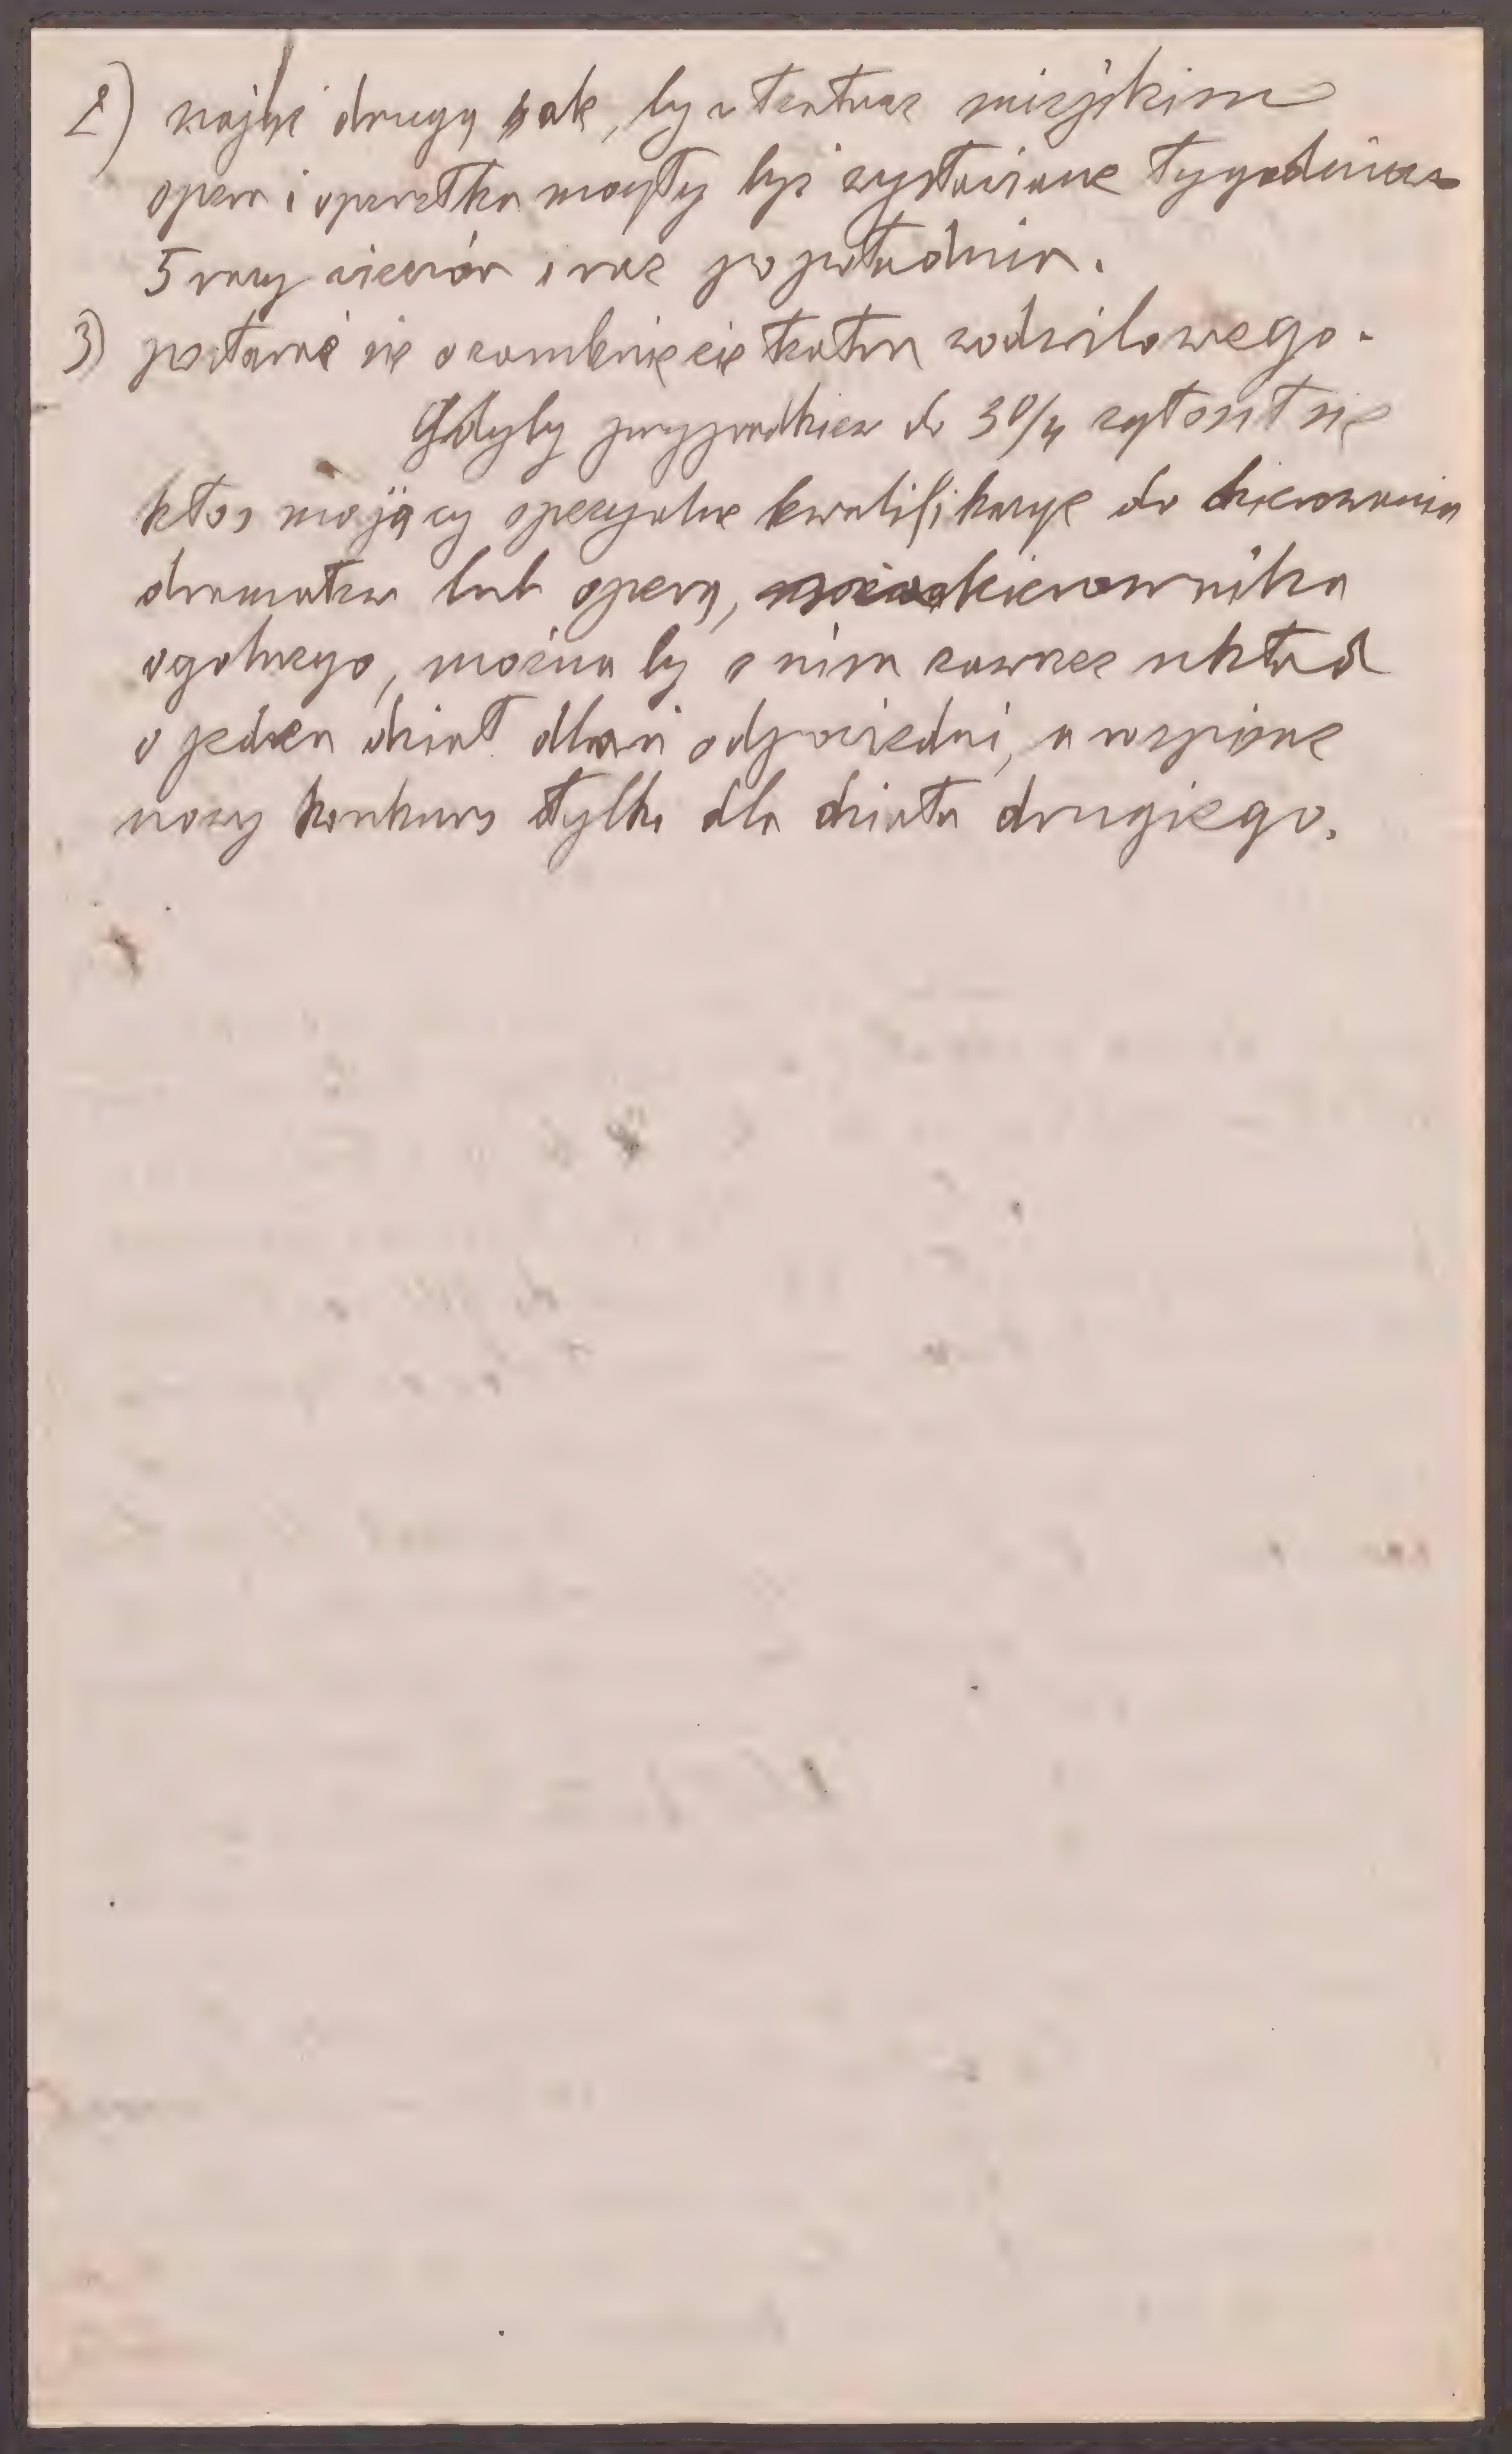 2) nająć drugą salę, by w teatrze miejskim
opera i operetka mogły być wystawiane tygodniowo
5 razy wieczór i raz po południu.
3) postarać się o zamknięcie teatru wodewilowego.
Gdyby przypadkiem do 30/4 zgłosił się
ktoś mający specyalne kwalifikacye do kierowania
dramatem lub operą, kierownika
ogólnego, można by z nim zawrzeć układ
o jeden dział dlań odpowiedni, a rozpisać
nowy konkurs tylko dla działu drugiego.